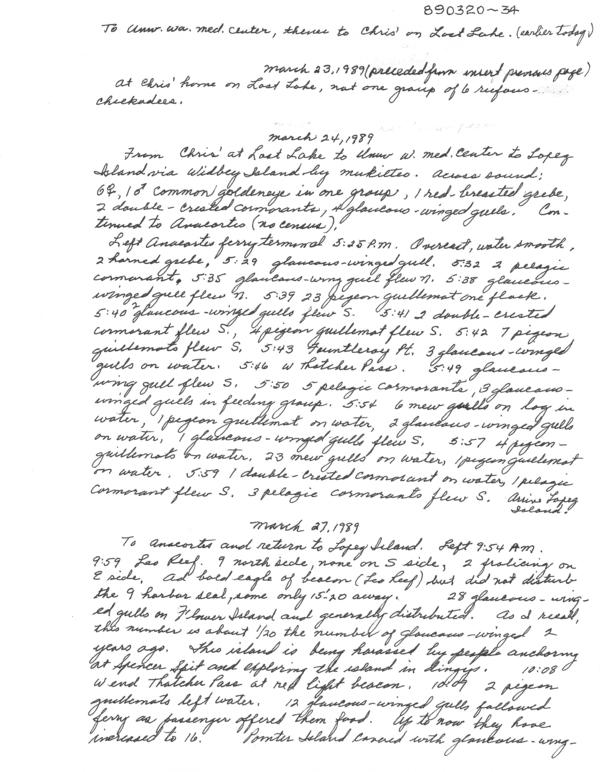 890320~34
To Univ. Wa. med. center, thence to Chris' on Lost Lake. (earlier today)
March 23, 1989 (preceded from insert previous page)
At Chris' home on Lost Lake, not one group of 6 rufous-
chickadees.
March 24, 1989
From Chris' at Lost Lake to Univ W. med. Center to Lopez
Island via Widbey Island by mukilteo. Across sound:
6♀, 1♂ common goldeneye in one group, 1 red-breasted grebe,
2 double-crested cormorants, 4 glaucous-winged gulls. Con-
tinued to Anacortes (no census).
Left Anacortes ferry terminal 5:25 P.M. Overcast, water smooth,
2 horned grebe, 5:29 glaucous-winged gull. 5:32 2 pelagic
cormorant, 5:35 glaucous-wing gull flew N. 5:38 glaucous-
winged gull flew N. 5:39 23 pigeon guillemot one flock.
5:40 2 glaucous-winged gulls flew S. 5:41 2 double-crested
cormorant flew S., 4 pigeon guillemot flew S. 5:42 7 pigeon
guillemots flew S. 5:43 Fauntleroy Pt. 3 glaucous-winged
gulls on water. 5:46 W Thatcher Pass. 5:49 glaucous-
wing gull flew S. 5:50 5 pelagic cormorants, 3 glaucous-
winged gulls in feeding group. 5:54 6 mew gulls on log in
water, 1 pigeon guillemot on water, 2 glaucous-winged gulls
on water, 1 glaucous-winged gulls flew S. 5:57 4 pigeon-
guillemots on water, 23 mew gulls on water, 1 pigeon guillemot
on water. 5:59 1 double-crested cormorant on water, 1 pelagic
cormorant flew S. 3 pelagic cormorants flew S. Arrive Lopez
Island.
March 27, 1989
To Anacortes and return to Lopez Island. Left 9:54 AM.
9:59 Leo Reef. 9 north side, none on S side, 2 frolicing on
E side. Ad bald eagle of beacon (Leo Reef) but did not disturb
the 9 harbor seal, some only 15', 20 away. 28 glaucous-wing-
ed gulls on Flower Island and generally distributed. As I recall,
this number is about 1/20 the number of glaucous-winged 2
years ago. This island is being harassed by people anchoring
at Spencer Spit and exploring the island in dingys. 10:08
W end Thatcher Pass at red light beacon. 10:09 2 pigeon
guillemots left water. 12 glaucous-winged gulls followed
ferry as passenger offered them food. Up to now they have
increased to 16. Pointer Island covered with glaucous-wing-